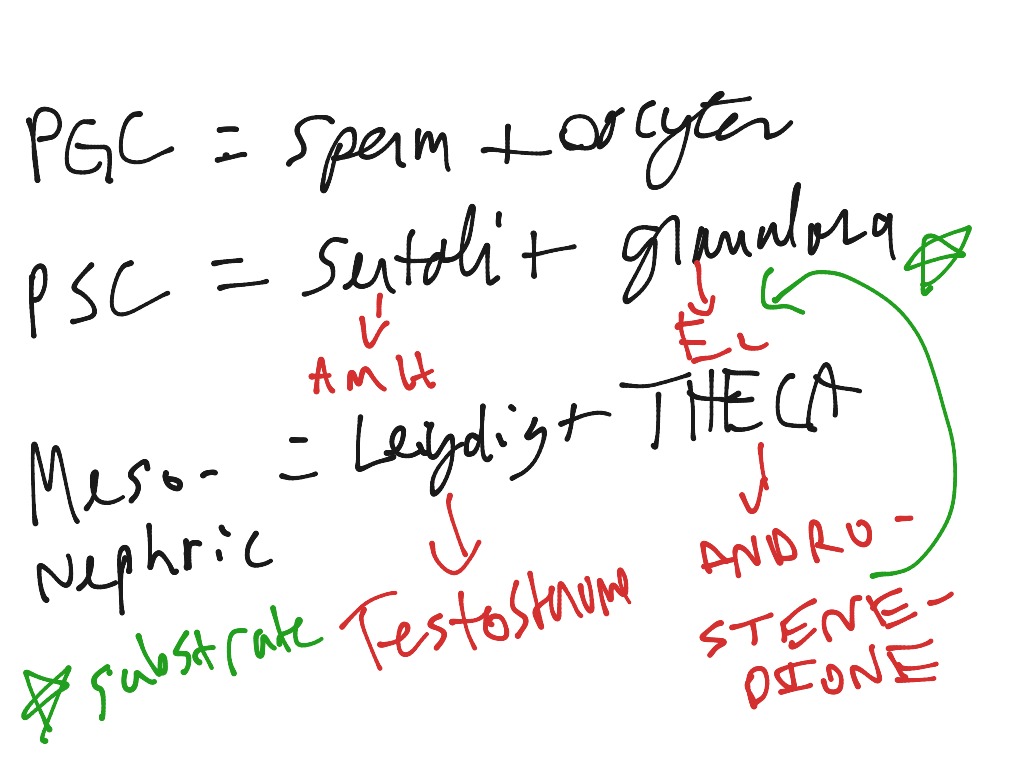 PGC = sperm + oocytes
PSC = Sertoli + granulosa
AMH
E2
Meso- = Leydig + THECA
nephric
ANDRO-
STENE-
DIONE
Testosterone
substrate